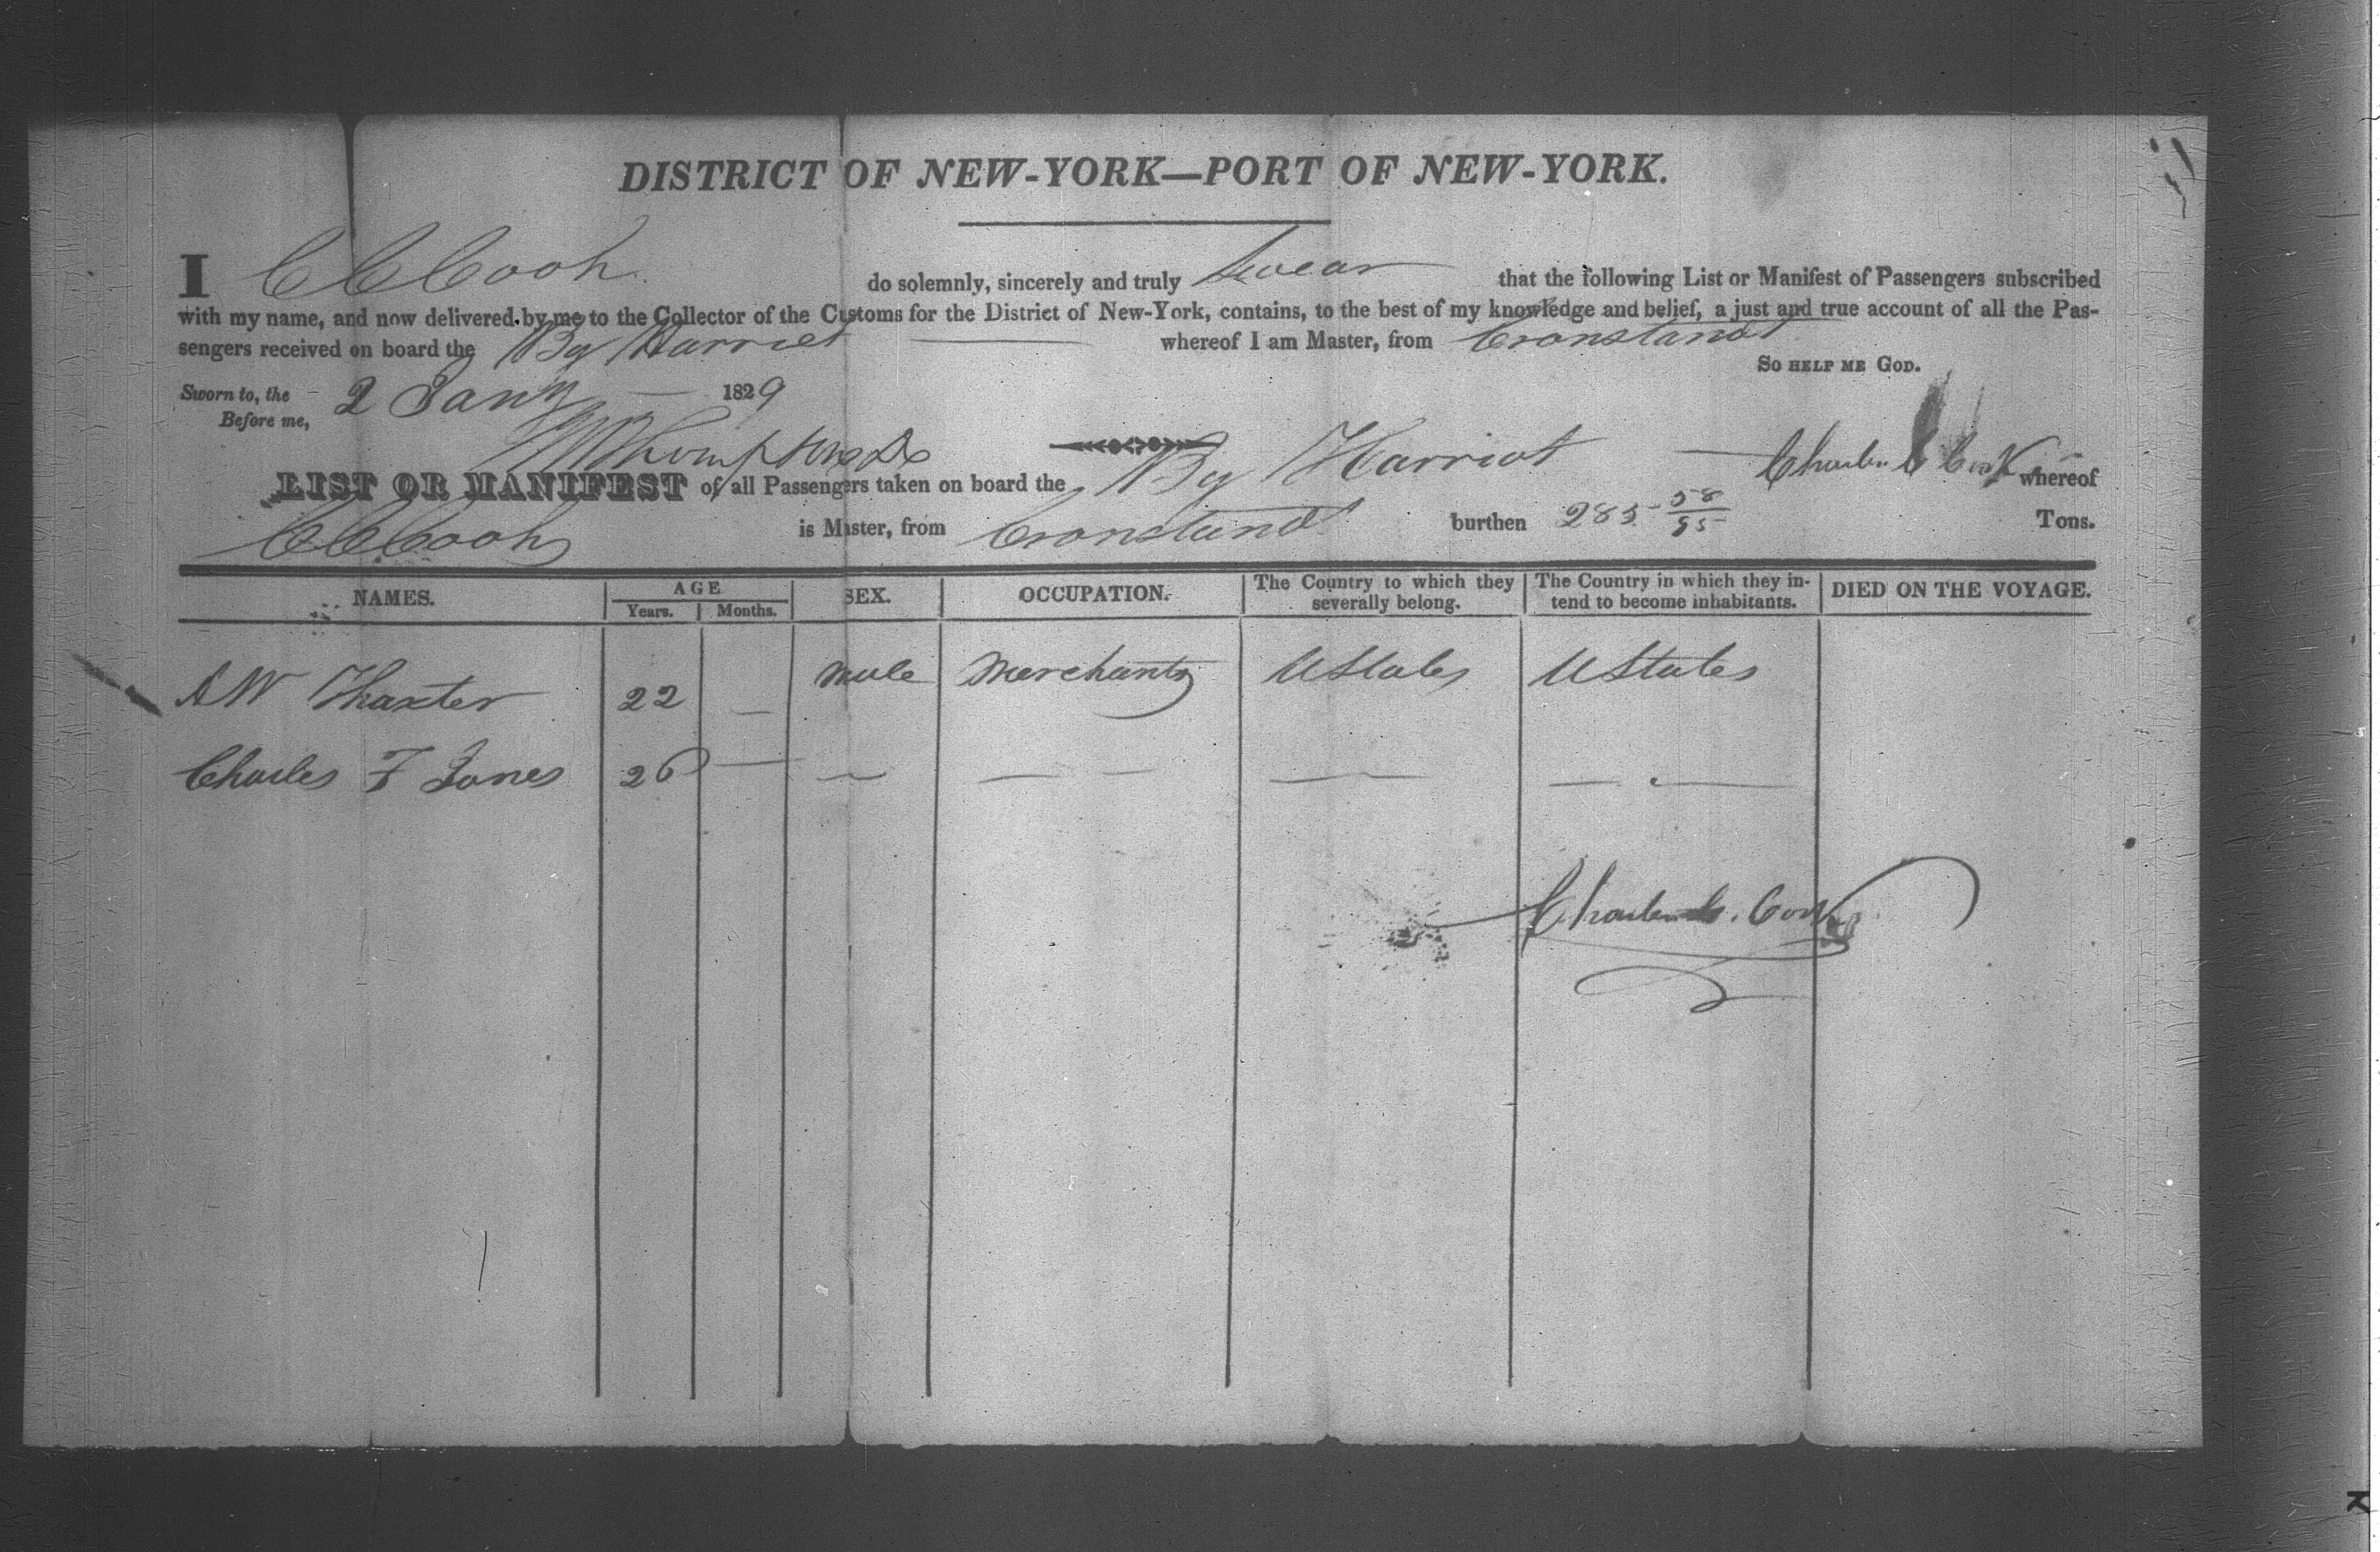 DISTRICT OF NEW-YORK—PORT OF NEW-YORK.
I C C Cook do solemnly, sincerely and truly swear that the following List or Manifest of Passengers subscribed
with my name, and now delivered by me to the Collector of the Customs for the District of New-York, contains, to the best of my knowledge and belief, a just and true account of all the Pas-
sengers received on board the Bg Harriet whereof I am Master, from Cronstandt
So HELP ME GOD.
Sworn to, the 2 Jany 1829
Before me,
LIST OR MANIFEST of all Passengers taken on board the Bg Harriot Charles C Cook whereof
C C Cook is Master, from Cronstandt burthen 285 58/95 Tons.
NAMES. AGE SEX. OCCUPATION. The Country to which they severally belong. The Country in which they in-tend to become inhabitants. DIED ON THE VOYAGE.
Years. Months.
A W Thaxter 22 — male Merchants UStates UStates
Charles F Jones 26 — — — — — — — —
Charles C. Cook
K